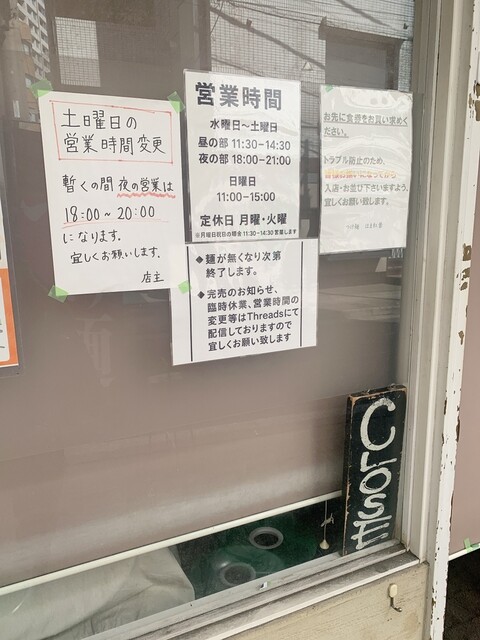 土曜日の
営業時間変更
暫くの間 夜の営業は
18:00~20:00
になります。
宜しくお願いします。
店主
営業時間
水曜日~土曜日
昼の部 11:30-14:30
夜の部 18:00-21:00
日曜日
11:00-15:00
定休日 月曜・火曜
※月曜日祝日の場合11:30-14:30営業します
◆麺が無くなり次第
終了します。
◆完売のお知らせ、
臨時休業、営業時間の
変更等はThreadsにて
配信しておりますので
宜しくお願い致します
お先に食券をお買い求めく
ださい。
トラブル防止のため、
皆様お揃いになってから
入店・お並び下さいますよう、
宜しくお願い致します。
CLOSE